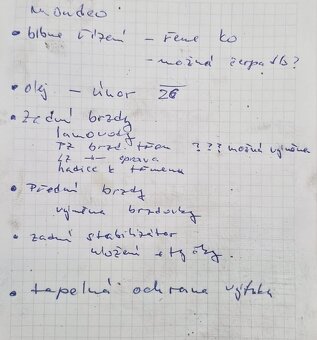 Mondeo
• blbne řízení – řeme ko
– možná čerpadlo?
• olej – únor 26
• Zadní brzdy
lanovody
PZ brzd třmen ??? možná výměna
LZ –"– oprava
hadice k třmenu
• Přední brzdy
výměna brzdovky
• zadní stabilizátor
uložení + tyčky
• tepelná ochrana výfuku